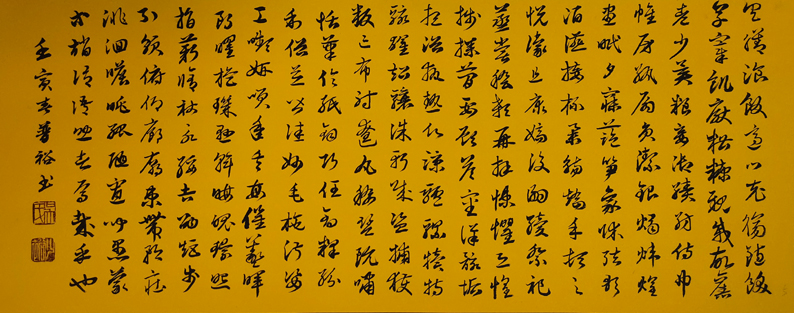 具膳飡飯適口充腸飽飫
烹宰飢厭糟糠親戚故舊
老少異糧妾御績紡侍巾
帷房紈扇員潔銀燭煒煌
晝眠夕寐藍筍象床弦歌
酒讌接杯舉觴矯手頓足
悅豫且康嫡後嗣續祭祀
蒸嘗稽顙再拜悚懼恐惶
箋牒簡要顧答審詳骸垢
想浴執熱願涼驢騾犢特
駭躍超驤誅斬賊盜捕獲
叛亡布射遼丸嵇琴阮嘯
恬筆倫紙鈞巧任釣釋紛
利俗並皆佳妙毛施淑姿
工顰妍笑年矢每催羲暉
朗曜旋璣懸斡晦魄環照
指薪修祜永綏吉劭矩步
引領俯仰廊廟束帶矜莊
徘徊瞻眺孤陋寡聞愚蒙
等誚謂語助者焉哉乎也
壬寅春普裕书